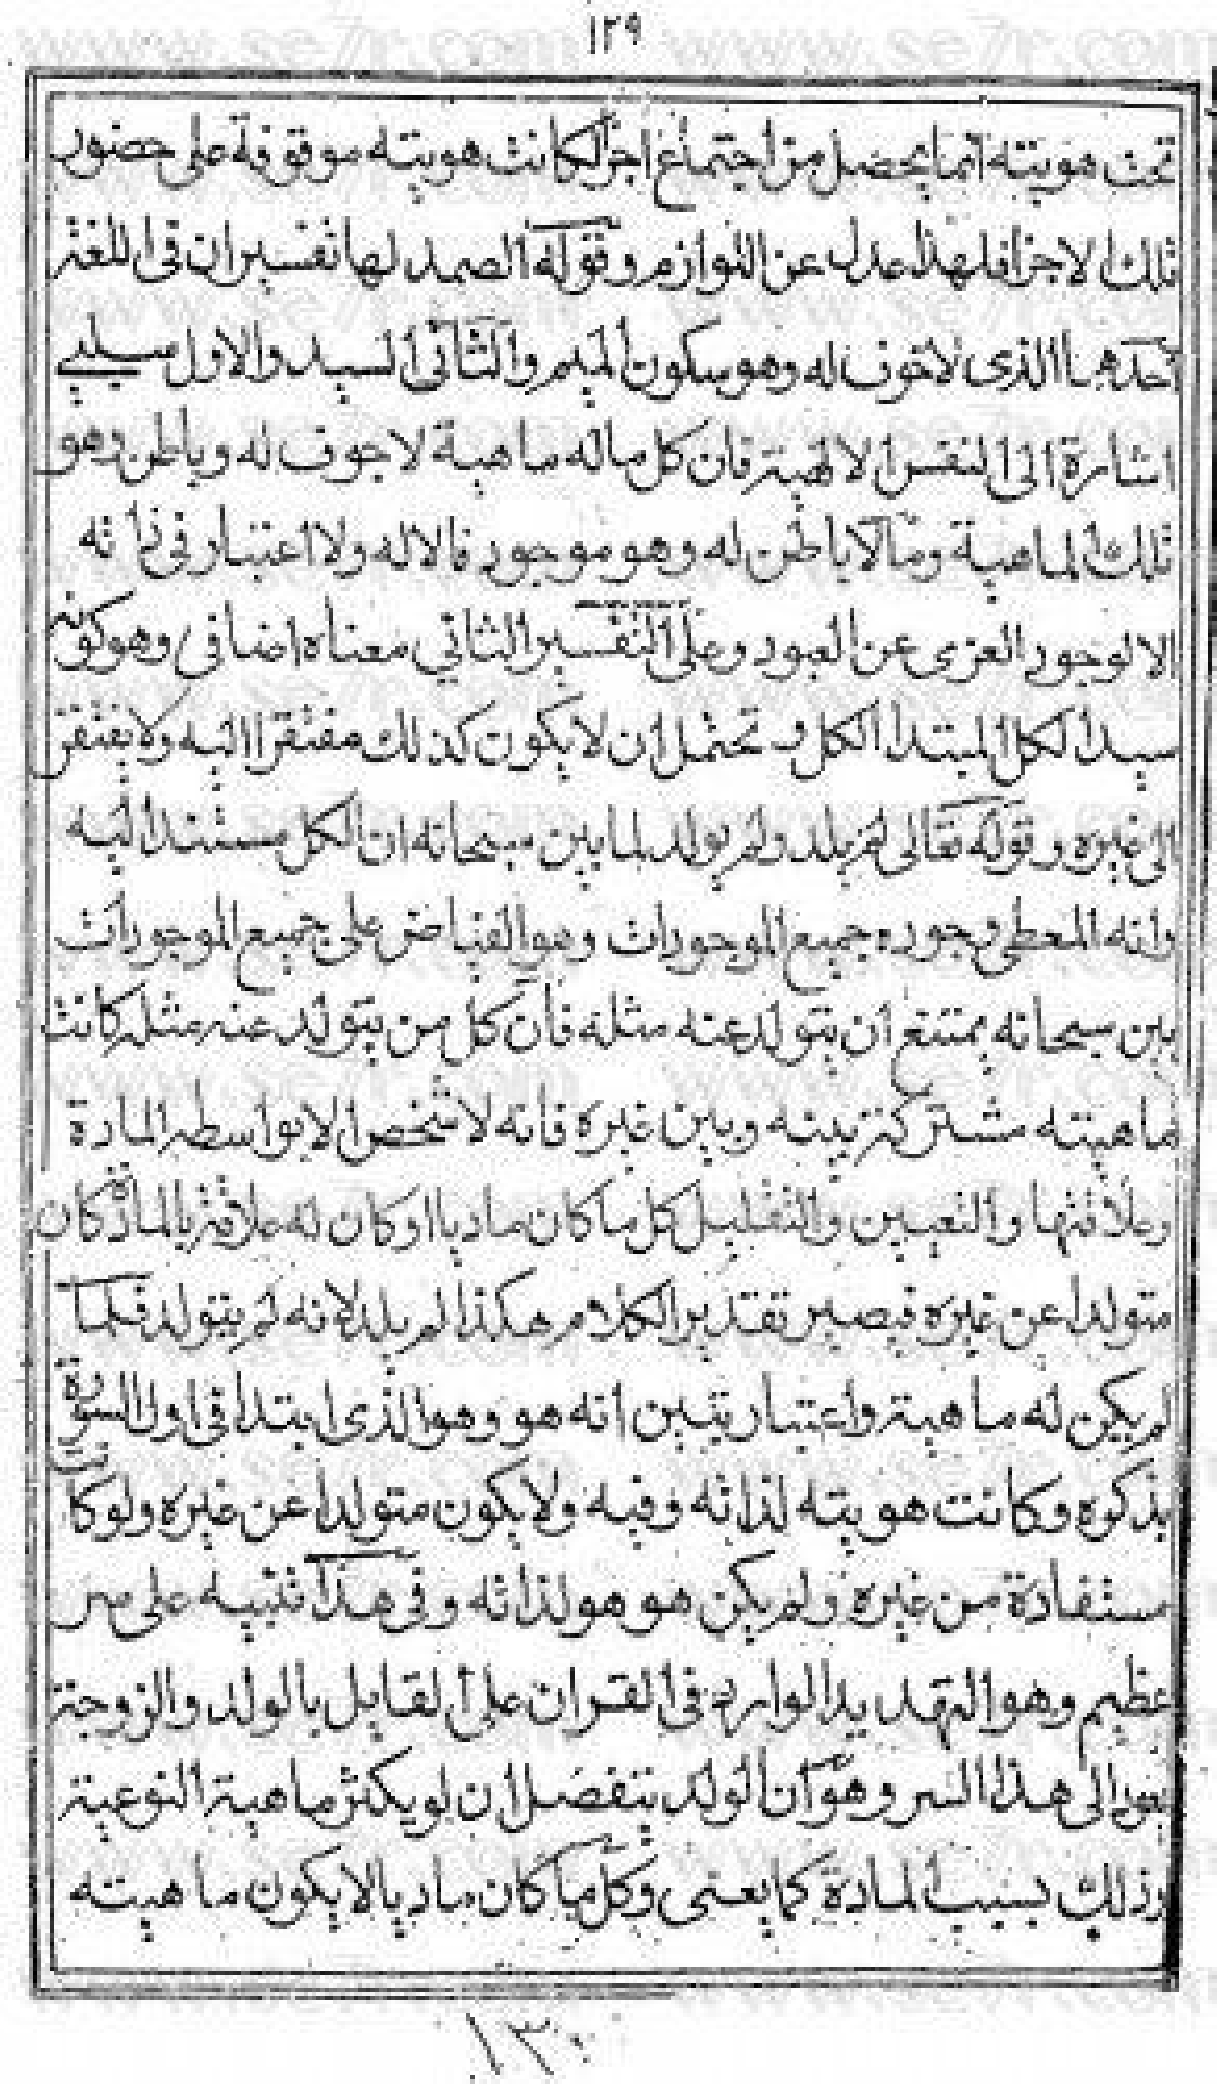 ١٢٩
تحت هويته انما يحصل من اجتماع اجزا لكانت هويته موقوفة على حضور
تلك الاجزا فلهذا عدل عن اللوازم وقوله الصمد لها تفسيران في اللغة
احدهما الذي لاخوف له وهو سكون الميم والثاني السيد والاول سلبي
اشارة الى النفس الالهية فان كل ماله ماهية لا جوف له وباطن وهو
تلك الماهية وما لا باطن له وهو موجود فالاله ولا اعتبار في ذاته
الا لوجود العزى عن العبود وعلى التفسير الثاني معناه اضافي وهو كونه
سيدا لكل المبتدا الكل و تحتمل ان لا يكون كذلك مفتقرا اليه ولا يفتقر
الى غيره وقوله تعالى لم يلد ولم يولد لما بين سبحانه ان الكل مستند اليه
وانه المعطى وجوده جميع الموجودات وهو الفياض على جميع الموجودات
بين سبحانه يمتنع ان يتولد عنه مثله فان كل من يتولد عنه مثله كانت
ماهيته مشتركة بينه وبين غيره فانه لا شخص الا بواسطة المادة
وعلاقتها والتعيين والتقليل كل ما كان ماديا او كان له علاقة بالمادة كان
متولدا عن غيره فيصير تقدير الكلام هكذا لم يلد لانه لم يتولد فلما
لم يكن له ماهية واعتبار يتبين انه هو وهو الذي ابتدا في اول السورة
يذكره وكانت هويته لذاته وفيه ولا يكون متولدا عن غيره ولو كانت
مستفادة من غيره ولم يكن هو هو لذاته وفي هذا تنبيه على سر
عظيم وهو التهديد الوارد في القران على القايل بالولد والزوجة
يعود الى هذا السر وهو ان الولد يتفصل ان لو يكثر ماهية النوعية
وذلك بسبب المادة كما يعنى وكل ما كان ماديا لا يكون ماهيته
١٣٠